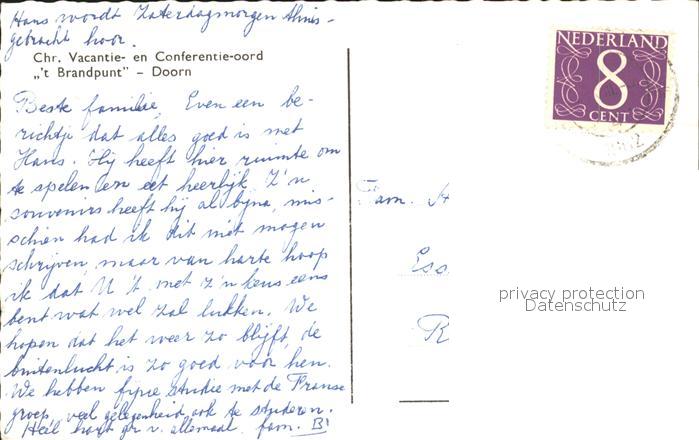 Hans wordt Zaterdagmorgen thuis-
gebracht hoor.
Chr. Vacantie- en Conferentie-oord
„'t Brandpunt" – Doorn
Beste familie, Even een be-
richtje dat alles goed is met
Hans. Hij heeft hier ruimte om
te spelen en eet heerlijk. Z'n
souvenirs heeft hij al bijna, mis-
schien had ik dit niet mogen
schrijven, maar van harte hoop
ik dat U 't met z'n keus eens
bent wat wel zal lukken. We
hopen dat het weer zo blijft, de
buitenlucht is zo goed voor hen.
We hebben fijne studie met de Franse
groep, veel gelegenheid ook te studeren.
Heel hart. gr. v. allemaal. fam. B!
NEDERLAND
8
CENT
Fam. H
Ess
R
privacy protection
Datenschutz